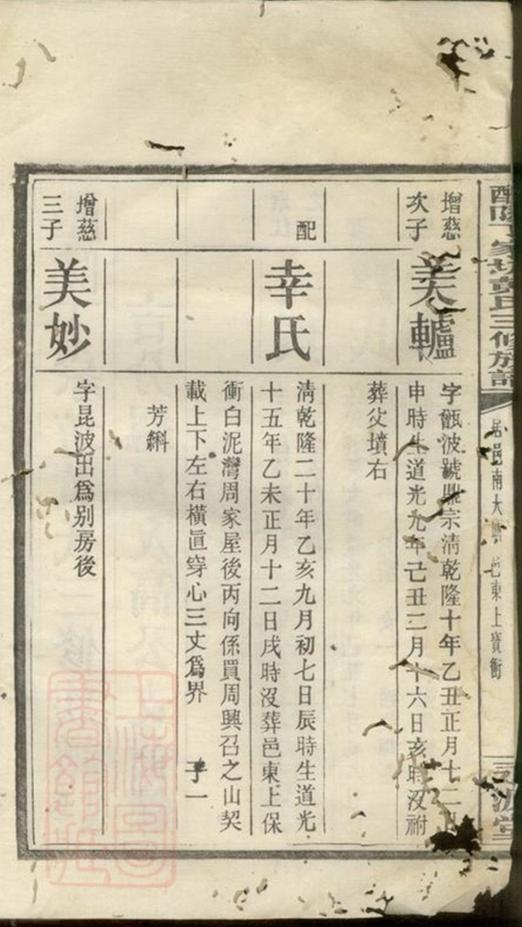 三修族譜
居邑南大 邑東上寶衝
增慈
次子
美轤
字甑波號鼎宗清乾隆十年乙丑正月十二
申時生道光九年己丑二月十六日亥時沒祔
葬父墳右
配
幸氏
清乾隆二十年乙亥九月初七日辰時生道光
十五年乙未正月十二日戌時沒葬邑東上保
衝白泥灣周家屋後丙向係買周興召之山契
載上下左右橫直穿心三丈爲界 子一
芳縡
增慈
三子
美妙
字昆波出爲别房後